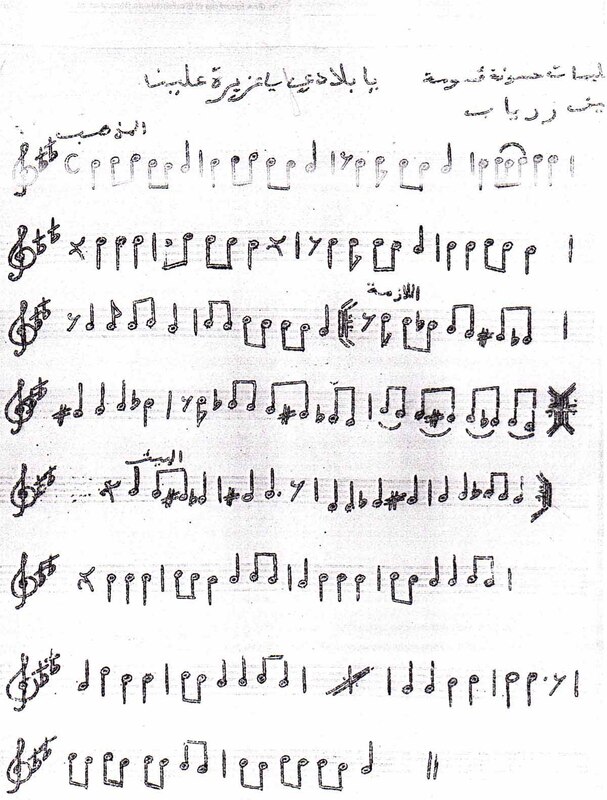 يا بلادي يا عزيزة علينا كلمات حسونة قسومة
زرياب
المذهب
اللازمة
البيت